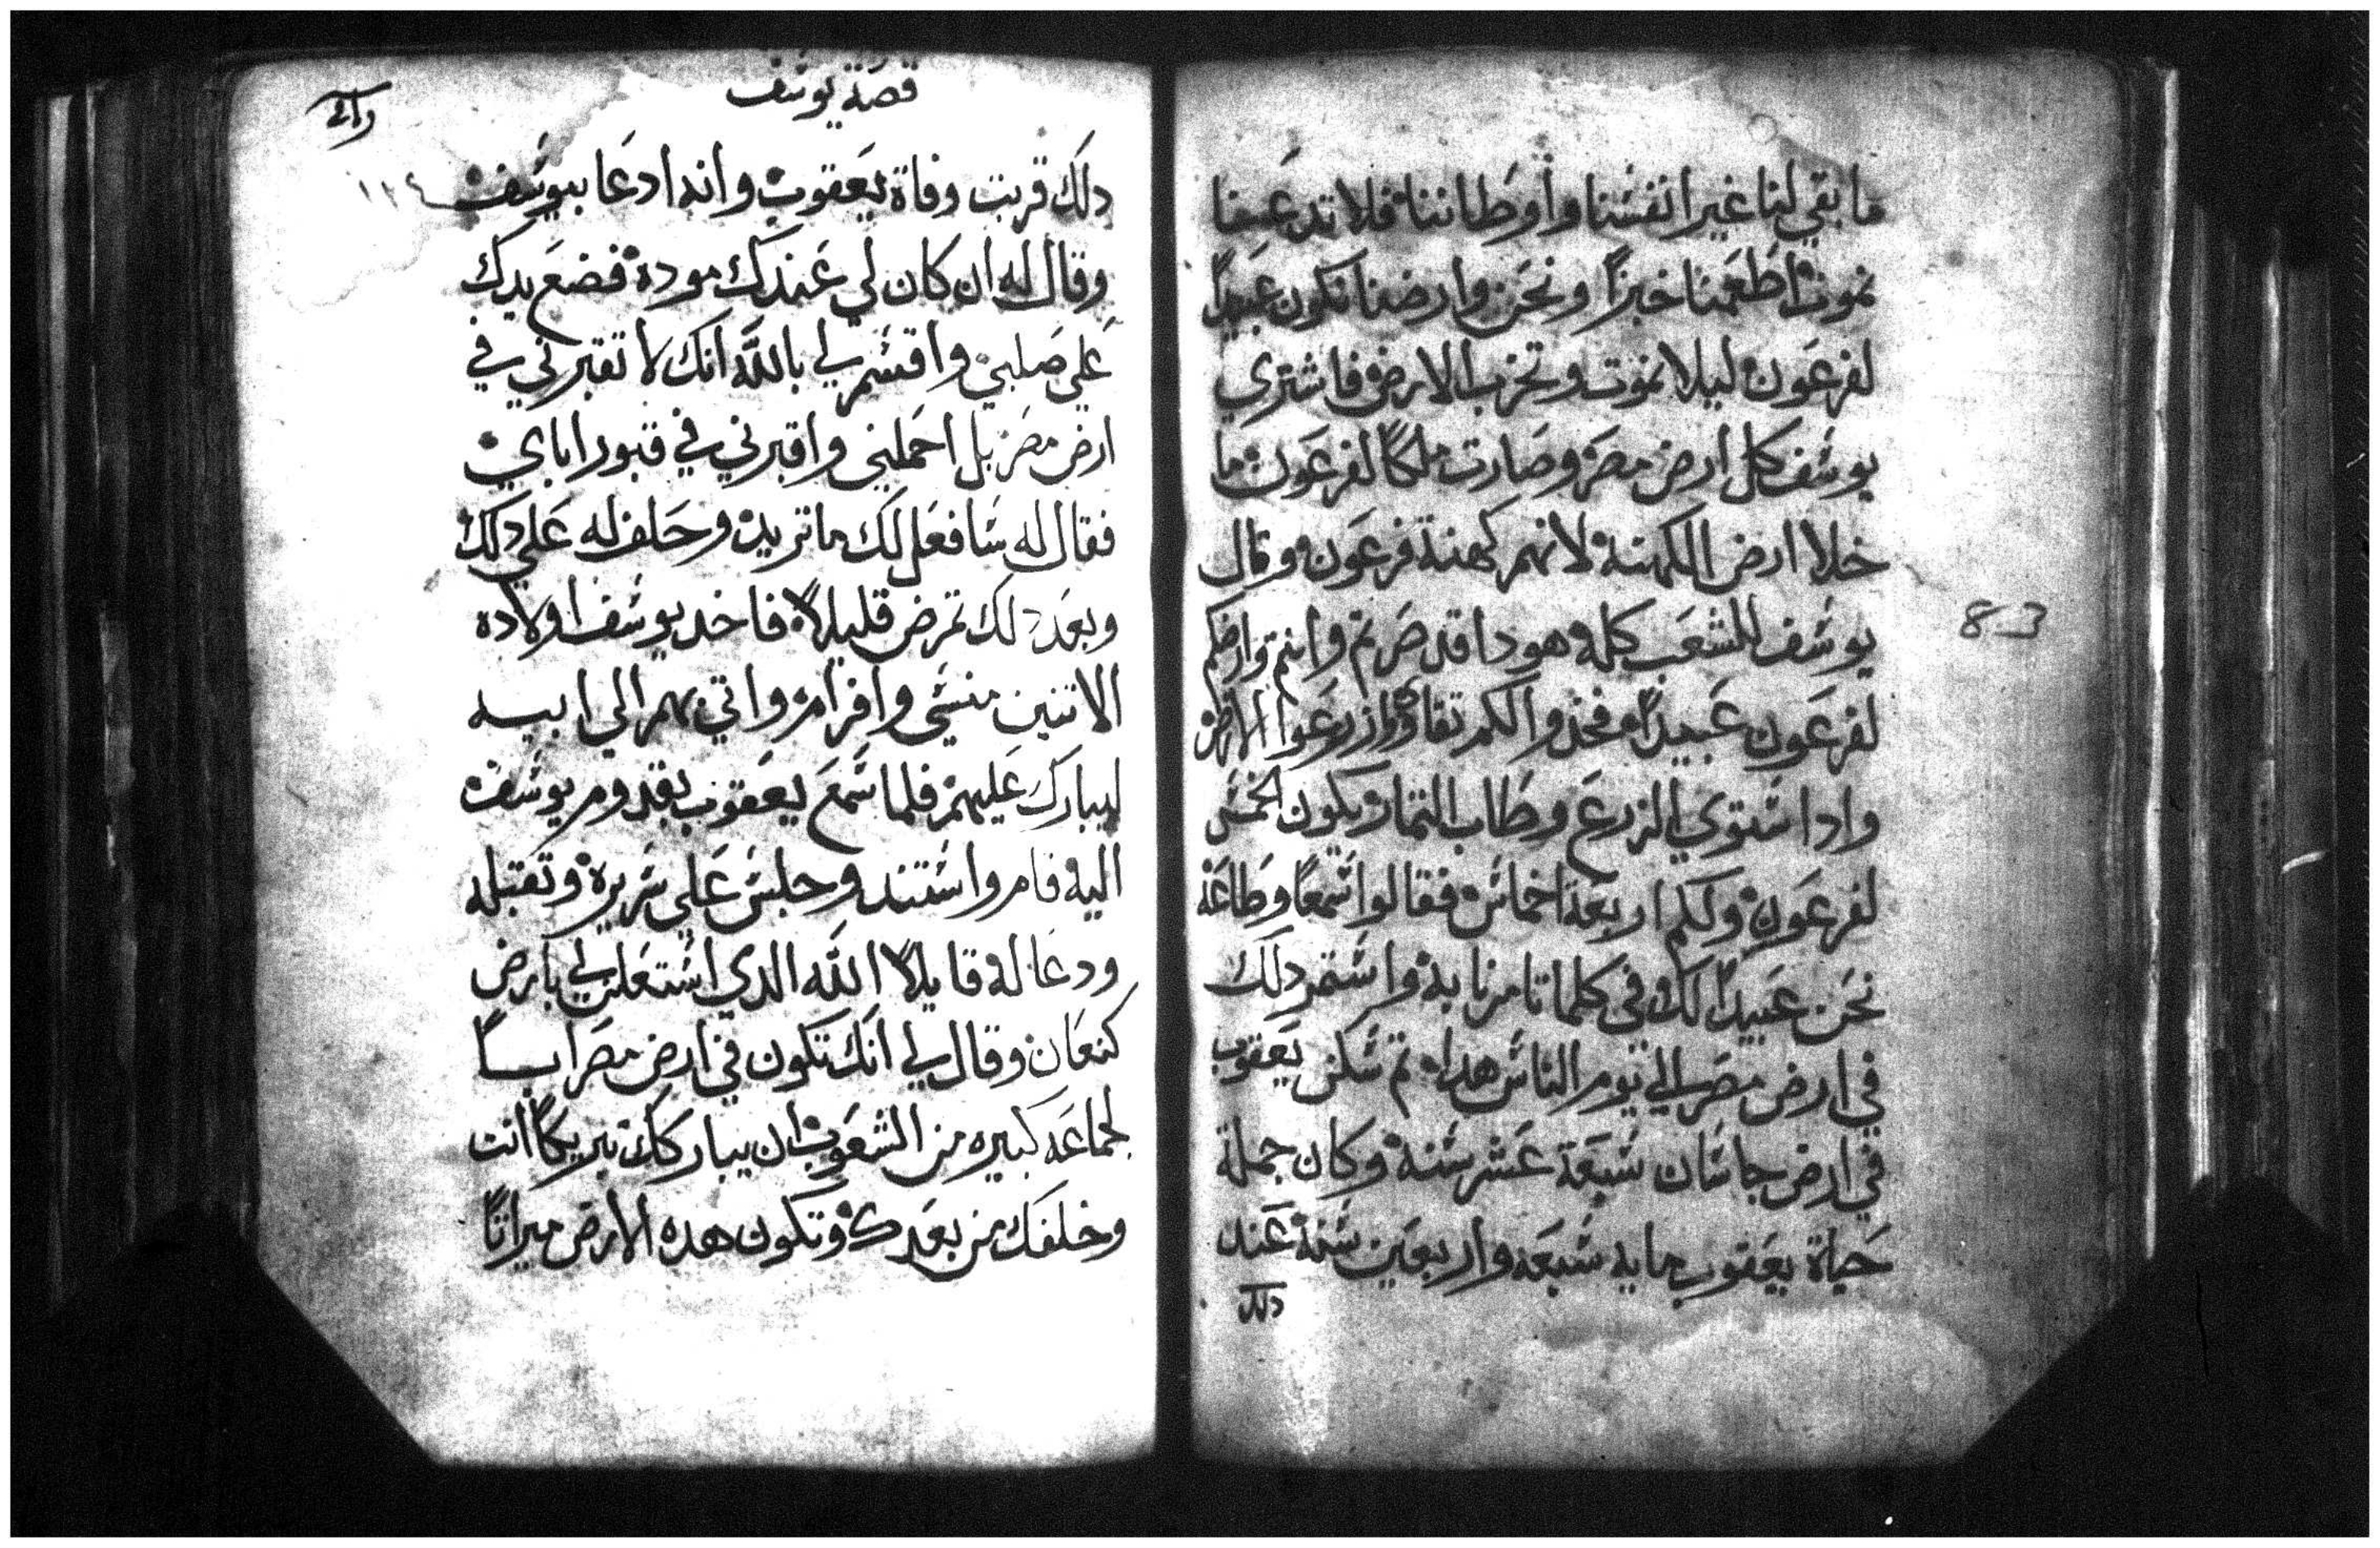 ما بقي لنا غير انفسنا واوطاننا فلا تدعنا
نموت اطعمنا خبزاً ونحن وارضنا نكون عبيداً
لفرعون ليلا نموت وتخرب الارض فاشتري
يوسف كل ارض مصر وصارت ملكاً لفرعون ما
خلا ارض الكهنه لانهم كهنة فرعون وقال
يوسف للشعب كله هودا قد صرتم وانتم وارضكم
لفرعون عبيداً فخذوا لكم تقاوي وازرعوا الارض
وادا استوي الزرع وطاب التمار يكون الخمس
لفرعون ولكم اربعة اخماس فقالوا سمعاً وطاعة
نحن عبيداً لك في كلما تامرنا به واستمر دلك
في ارض مصر الي يوم الناس هدا تم سكن يعقوب
في ارض جاسان سبعة عشر سنة وكان جملة
حياة يعقوب مايه سبعه واربعين سنة عند
دلك
83
قصة يوسف
١١٤
دلك قربت وفاة يعقوب وانه ادعا بيوسف
وقال له ان كان لي عندك موده فضع يدك
علي صلبي واقسم لي بالله انك لا تقبرني في
ارض مصر بل احملني واقبرني في قبور اباي
فقال له سافعل لك ما تريد وحلف له علي دلك
وبعد دلك تمرض قليلاً فاخد يوسف اولاده
الاتنين منسي وافرام واتي بهم الي ابيه
ليبارك عليهم فلما سمع يعقوب بقدوم يوسف
اليه قام واستند وجلس علي سريره وتقبله
ودعا له قايلاً الله الدي استعلن لي بارض
كنعان وقال لي انك تكون في ارض مصر اباً
لجماعه كبيره من الشعوب ان يباركك تبريكاً انت
وخلفك من بعدك وتكون هده الارض ميراتاً